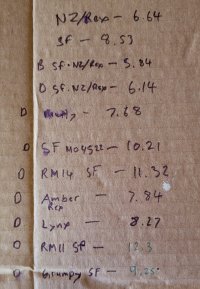 NZ/Rex - 6.64
SF - 8.53
B SF·NZ/Rex - 5.84
D SF·NZ/Rex - 6.14
O - 7.68
O SF M04522 - 10.21
O RM14 SF - 11.32
O Amber Rex - 7.84
O Lynx - 8.27
O RM11 SF - 12.3
O Grumpy SF - 9.25